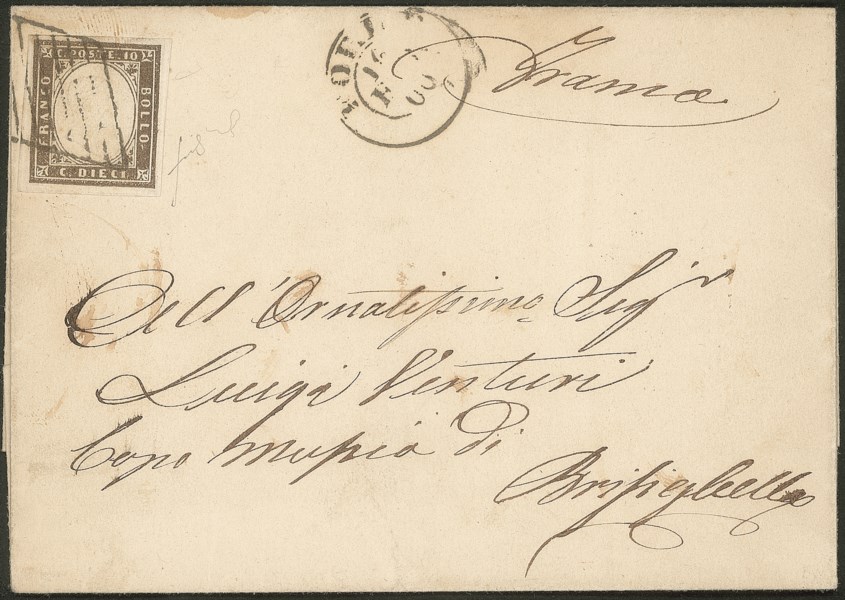 C. POSTE 10
FRANCO
BOLLO
C. DIECI
Franca
All'Ornatissimo Sigr
Luigi Venturi
Capo
di
Brisighella